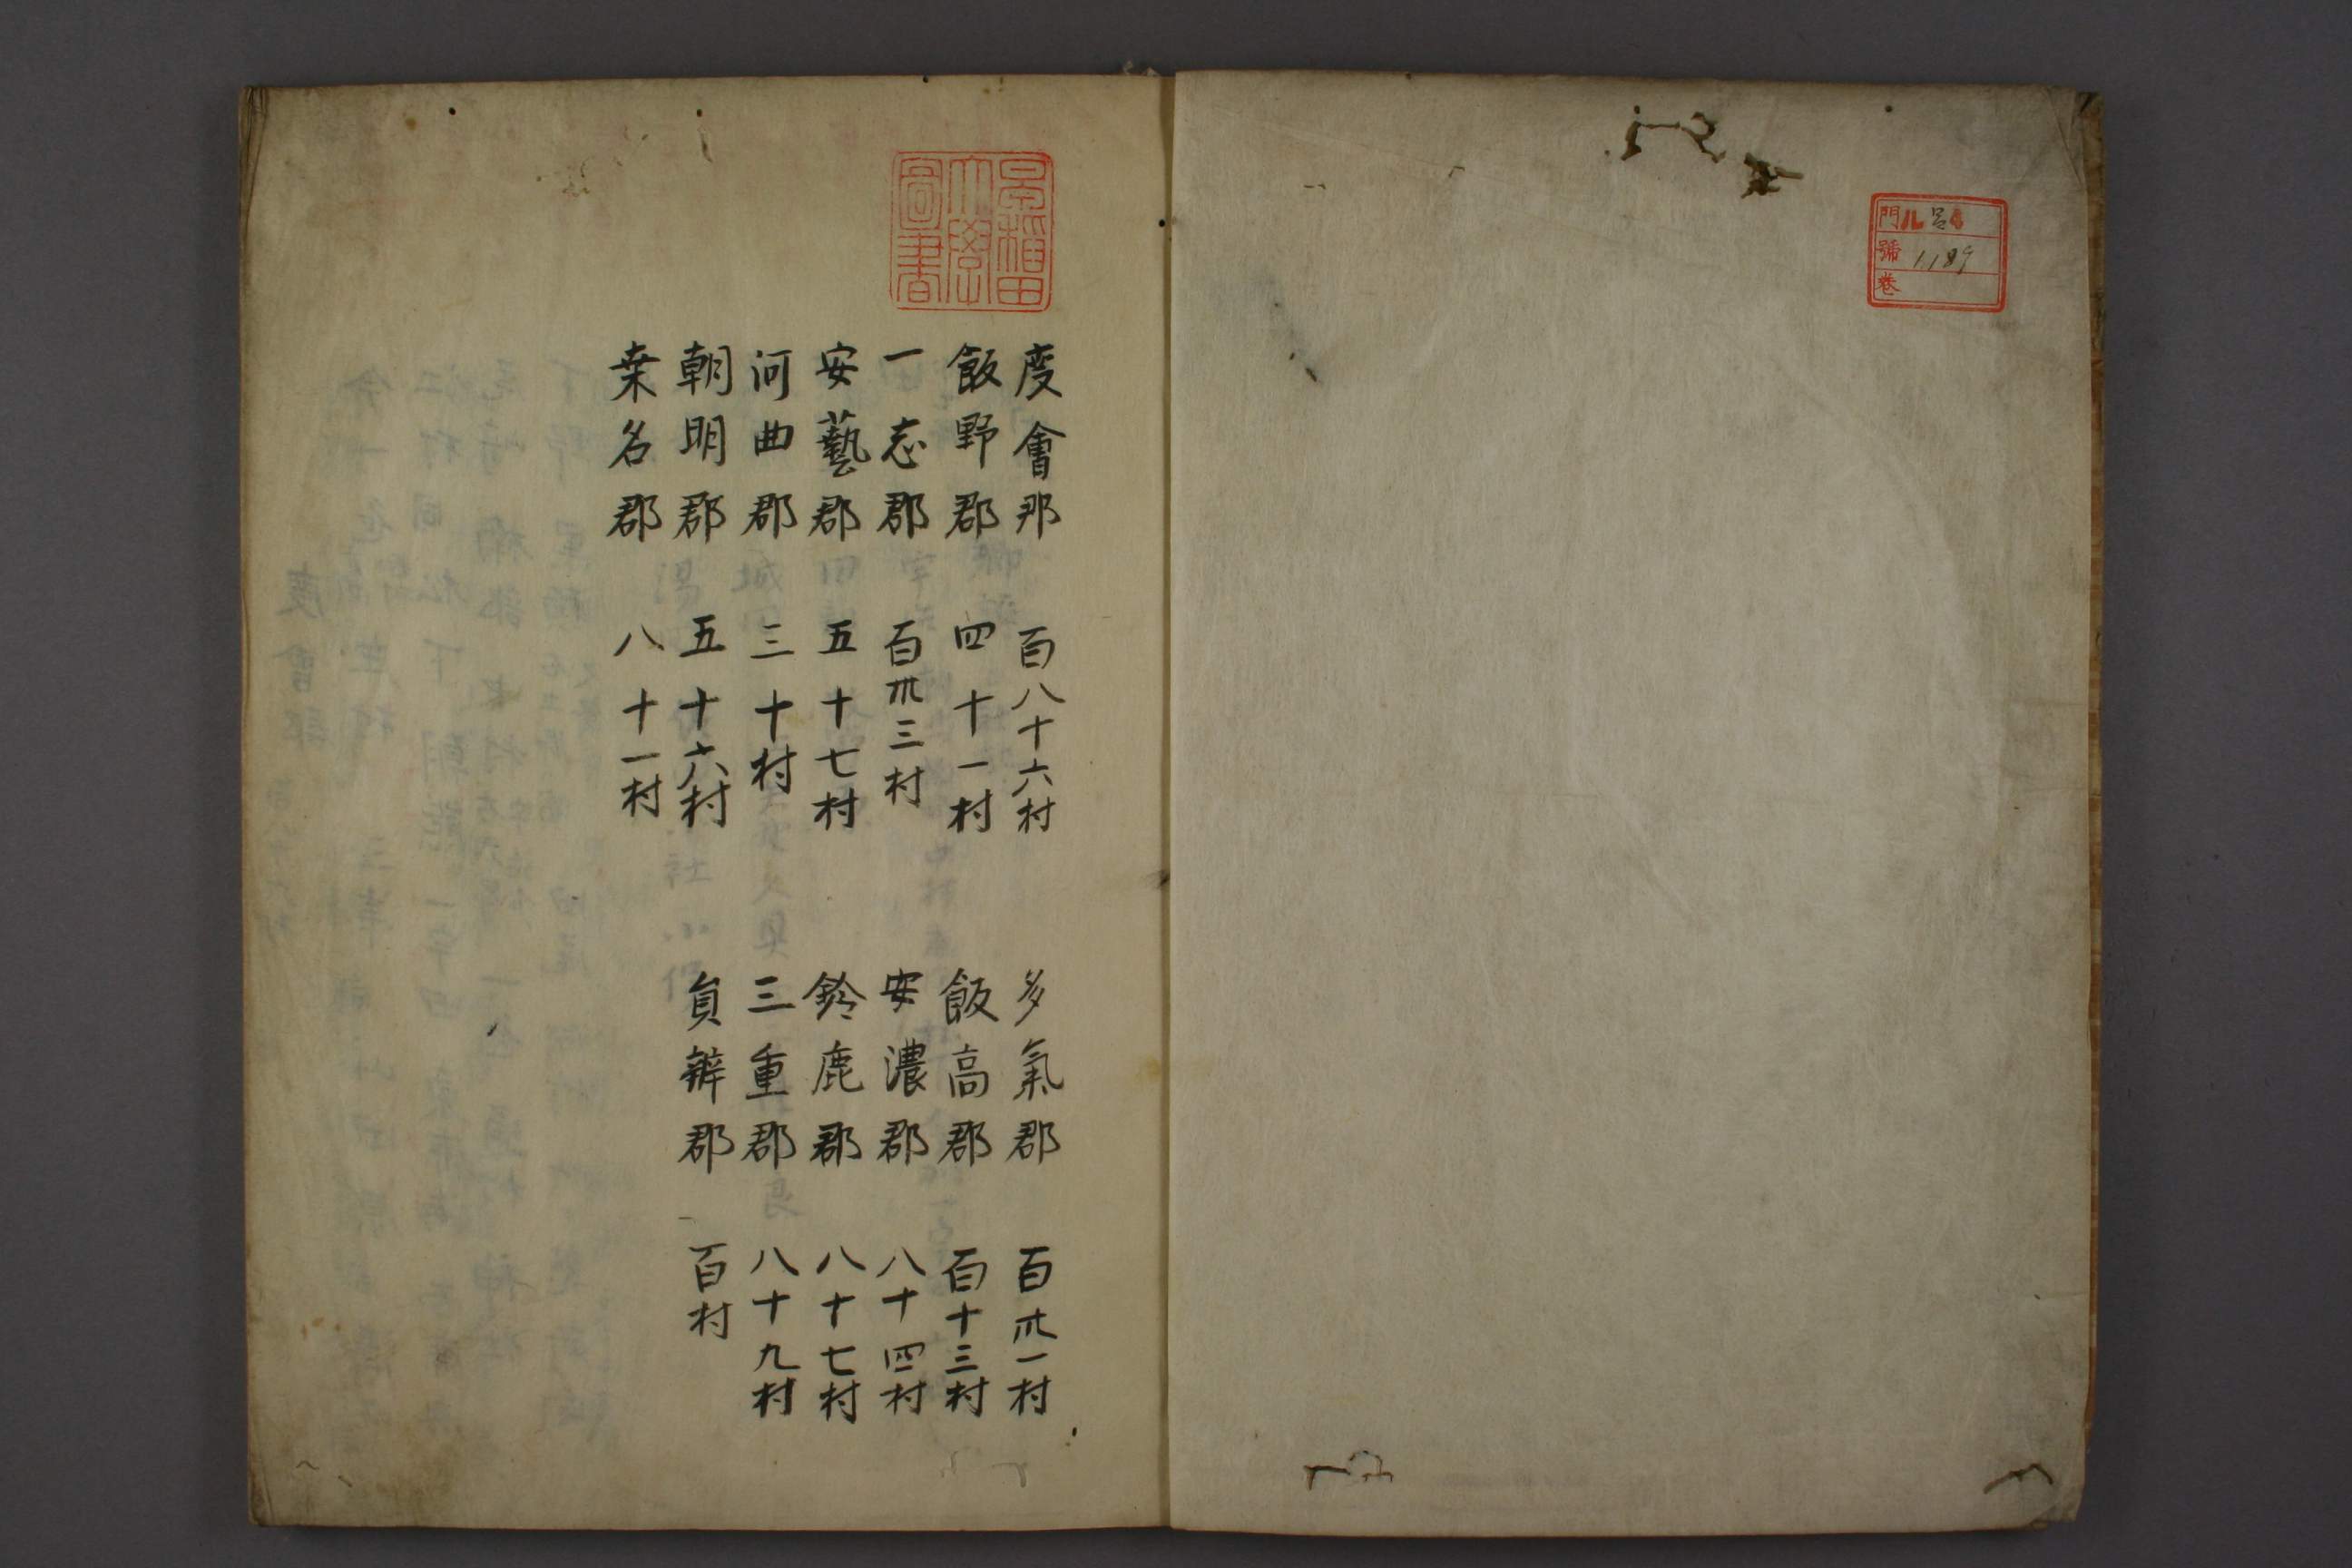 門 ル 呂4
號 1189
卷
早稲田大學圖書
度會郡 百八十六村 多氣郡 百卅一村
飯野郡 四十一村 飯高郡 百十三村
一志郡 百卅三村 安濃郡 八十四村
安藝郡 五十七村 鈴鹿郡 八十七村
河曲郡 三十村 三重郡 八十九村
朝明郡 五十六村 員辨郡 百村
桒名郡 八十一村